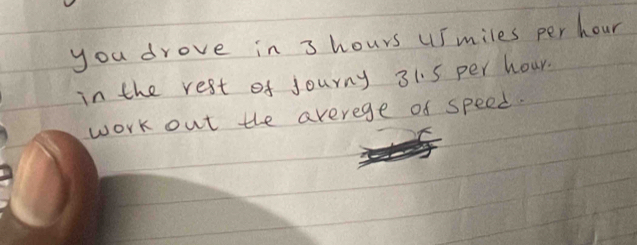 you drove in 3 hours 45 miles per hour
in the rest of journy 31.5 per hour.
work out the averege of speed.